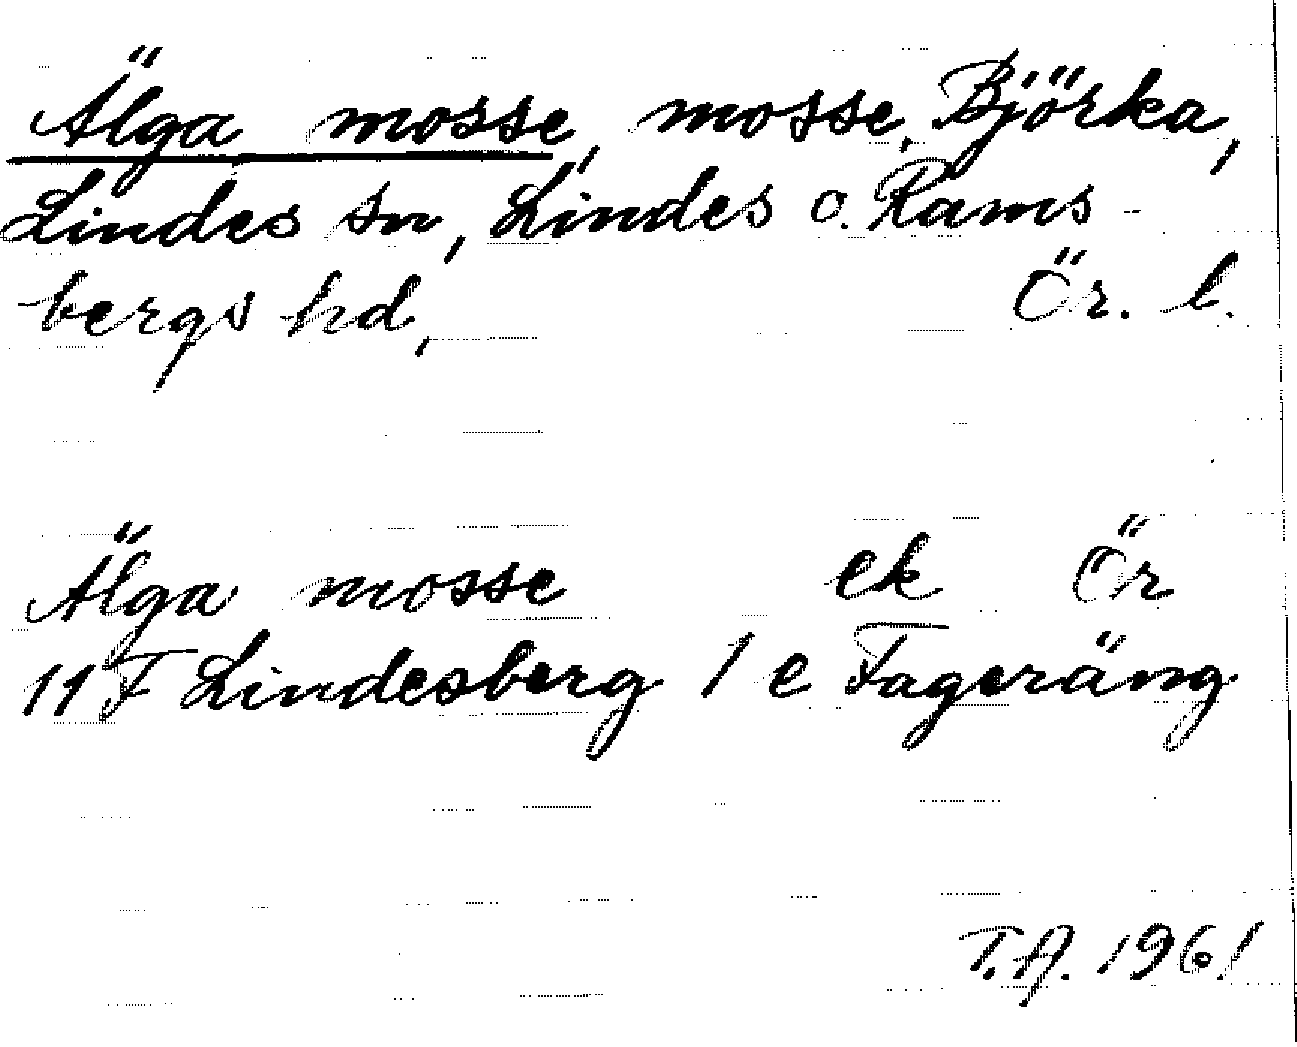 Älga mosse, mosse, Björka,
Lindes sn, Lindes o. Rams-
bergs hd, Ör. l.
Älga mosse ek Ör
11F Lindesberg 1 e Fageräng
T.A. 1961